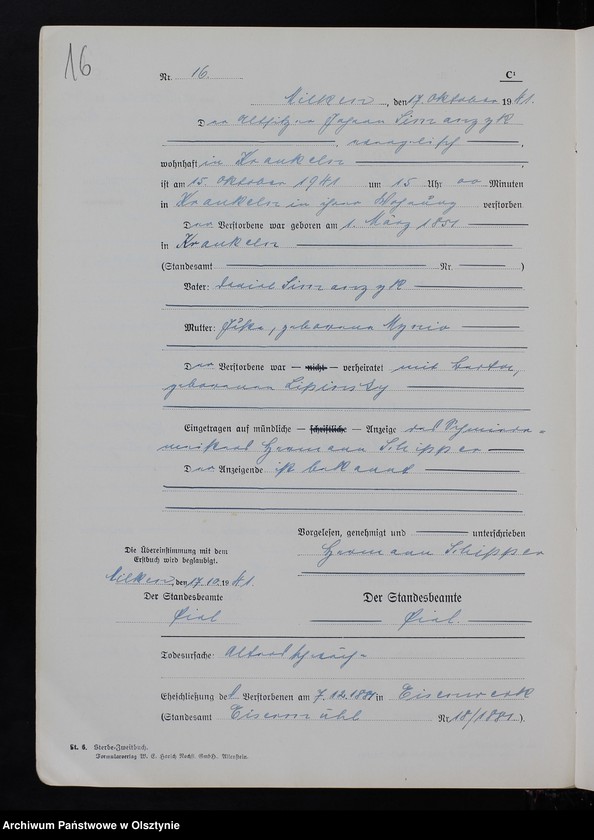 16
Nr. 16. C¹
Milken, den 17. Oktober 1941.
Der Altsitzer Johann Simanzyk
evangelisch
wohnhaft in Kraukeln
ist am 15. Oktober 1941 um 15 Uhr 00 Minuten
in Kraukeln in seiner Wohnung verstorben
Der Verstorbene war geboren am 1. März 1851
in Kraukeln
(Standesamt Nr. )
Vater: Simanzyk
Mutter: geborene
Der Verstorbene war — nicht — verheiratet mit
geborenen Lipinsky
Eingetragen auf mündliche — schriftliche — Anzeige des
Hermann Schipper
Der Anzeigende ist bekannt
Vorgelesen, genehmigt und unterschrieben
Hermann Schipper
Die Übereinstimmung mit dem
Erstbuch wird beglaubigt.
Milken, den 17.10.1941.
Der Standesbeamte
Der Standesbeamte
Todesursache: Altersschwäche
Eheschließung de Verstorbenen am 7.12.1881 in Eisenwerk
(Standesamt Eisermühl Nr. 18/1881.)
St. 6. Sterbe-Zweitbuch.
Formularverlag W. E. Harich Nachf. GmbH., Allenstein.
Archiwum Państwowe w Olsztynie